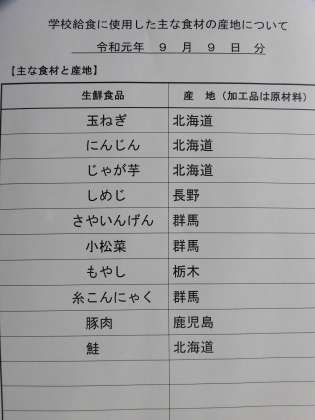 学校給食に使用した主な食材の産地について
令和元年 9 月 9 日 分
【主な食材と産地】
生鮮食品 産 地（加工品は原材料）
玉ねぎ 北海道
にんじん 北海道
じゃが芋 北海道
しめじ 長野
さやいんげん 群馬
小松菜 群馬
もやし 栃木
糸こんにゃく 群馬
豚肉 鹿児島
鮭 北海道